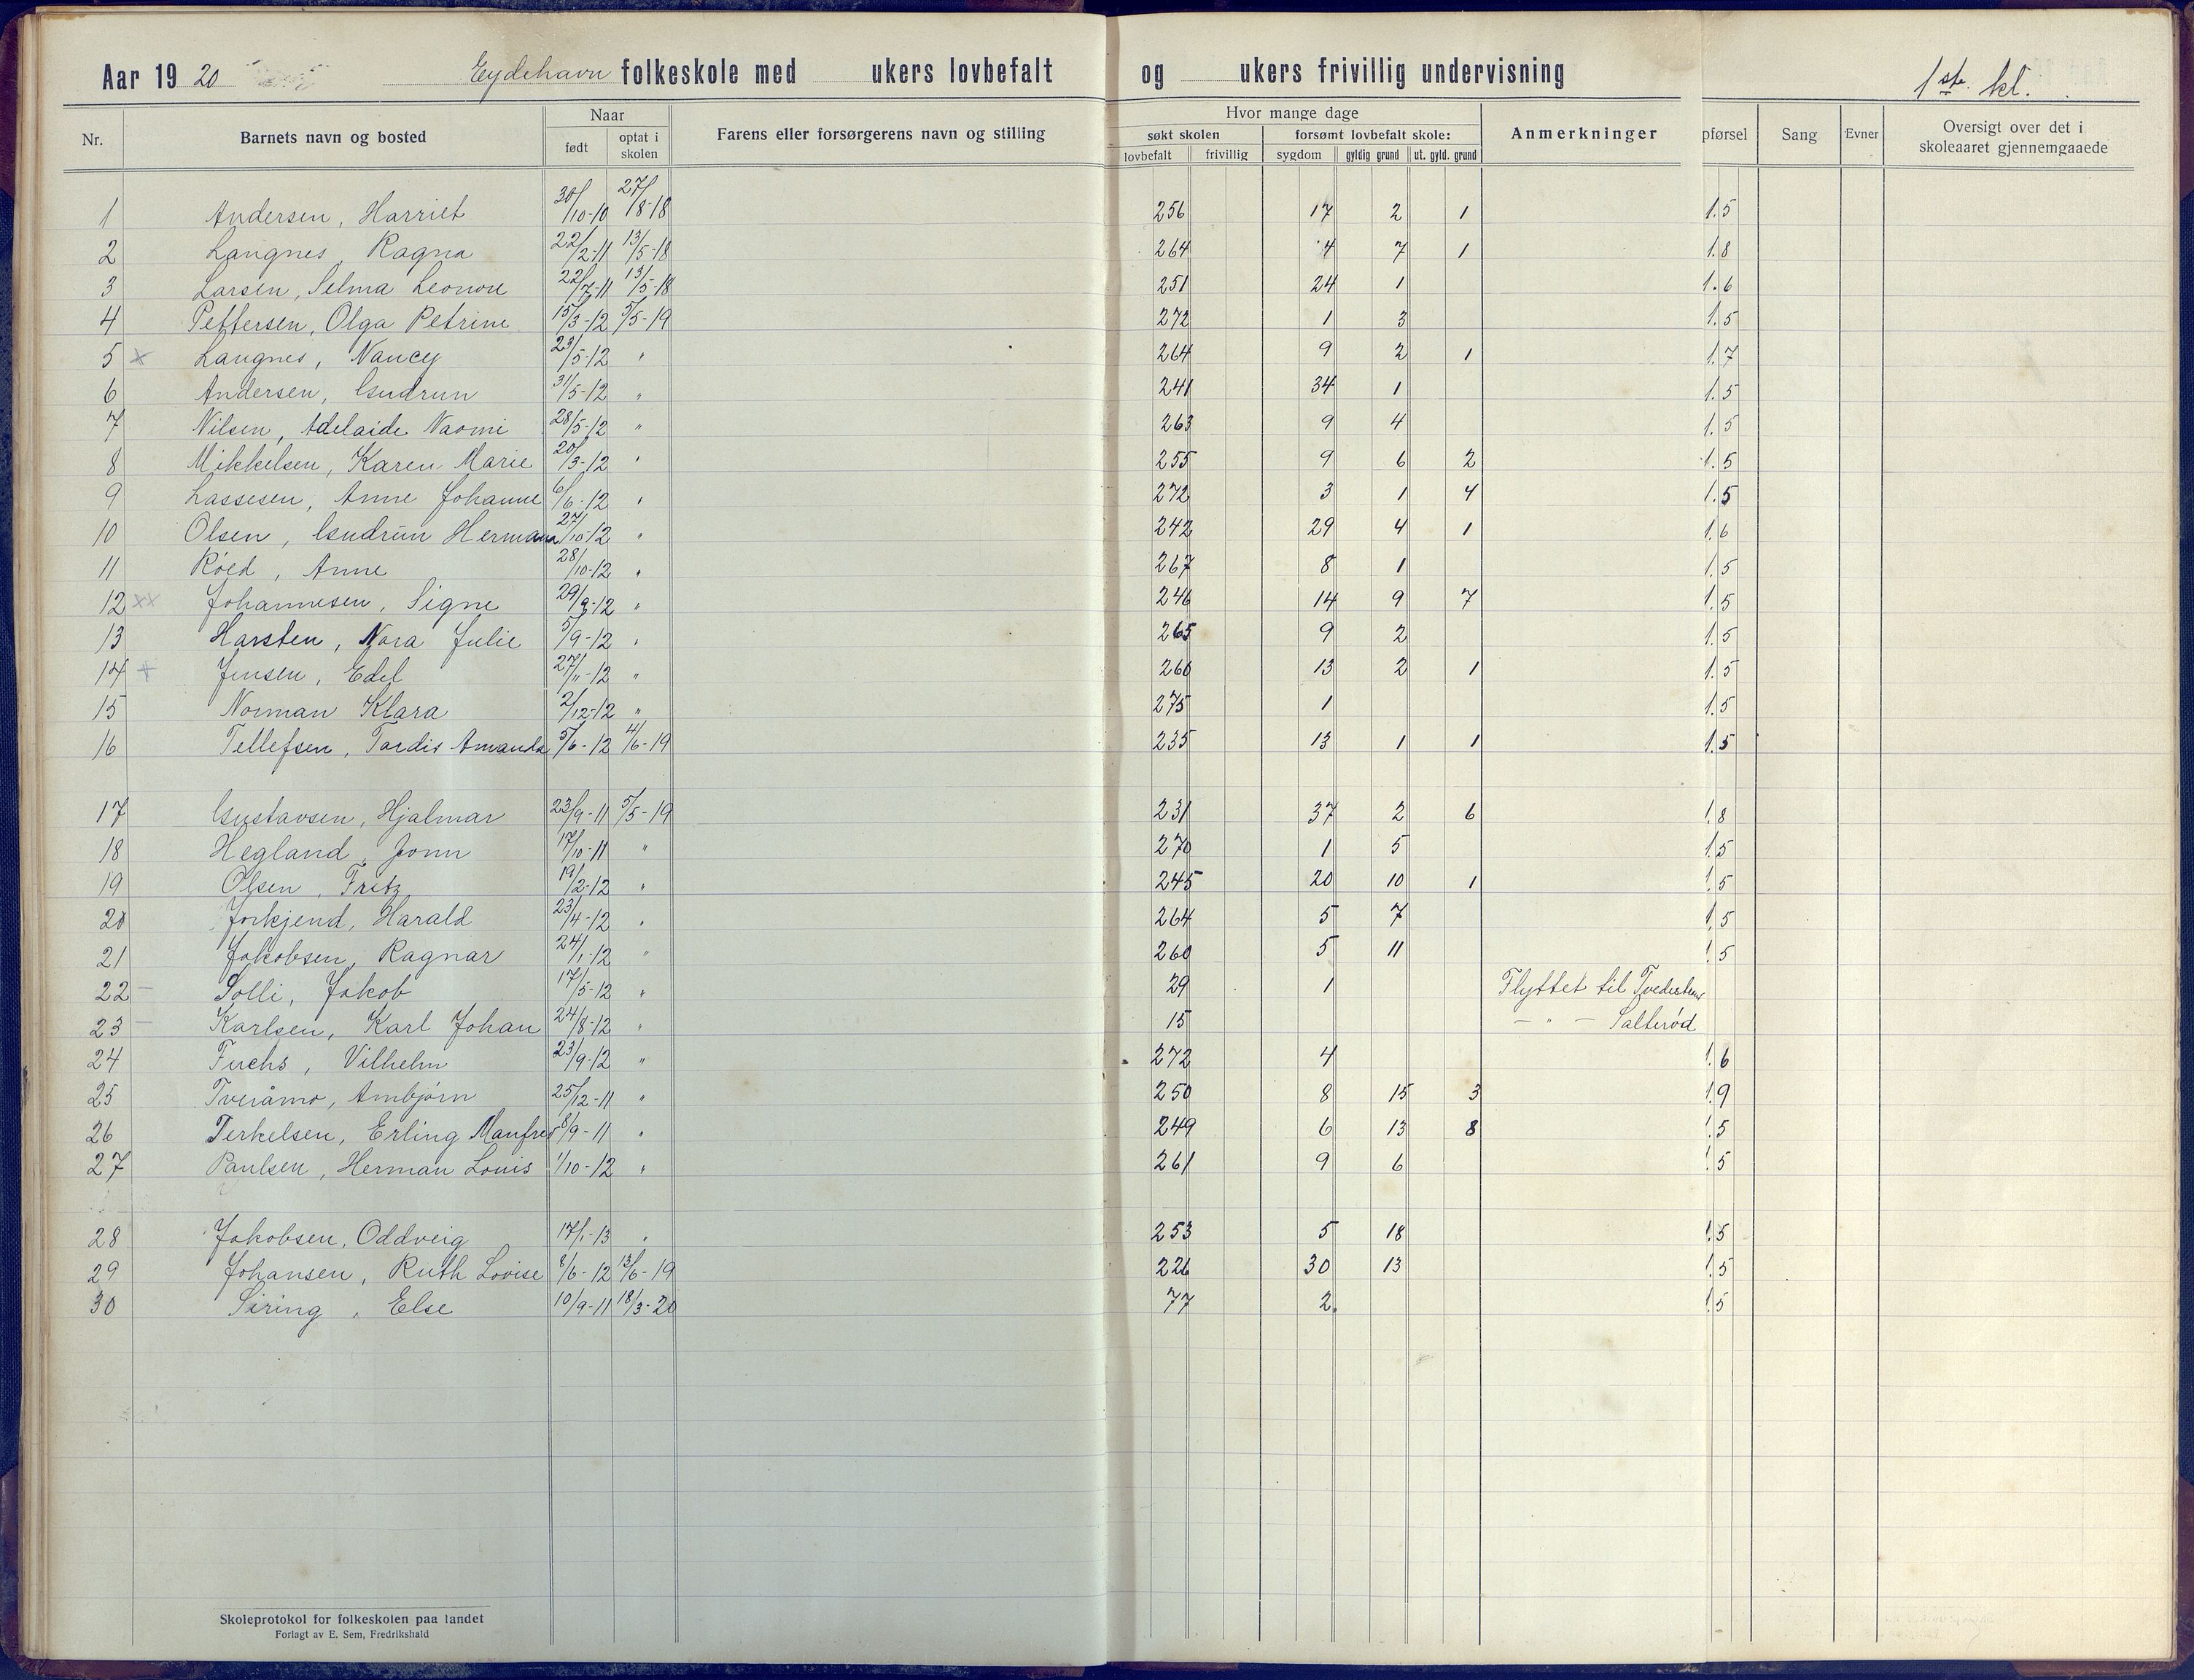 Aar 1920 Eydehavn folkeskole med ukers lovbefalt og ukers frivillig undervisning 1ste kl.
Nr. Barnets navn og bosted Naar født optat i skolen Farens eller forsørgerens navn og stilling Hvor mange dage søkt skolen lovbefalt frivillig forsømt lovbefalt skole: sygdom gyldig grund ut. gyld. grund Anmerkninger pførsel Sang Evner Oversigt over det i skoleaaret gjennemgaaede
1 Andersen, Harriet 30/10-10 27/8-18 256 17 2 1 1.5
2 Langnes, Ragna 22/2-11 13/5-18 264 4 7 1 1.8
3 Larsen, Selma Leonore 22/7-11 13/5-18 251 24 1 1.6
4 Pettersen, Olga Petrine 15/3-12 5/5-19 272 1 3 1.5
5 x Langnes, Nancy 23/5-12 " 264 9 2 1 1.7
6 Andersen, Gudrun 31/5-12 " 241 34 1 1.5
7 Nilsen, Adelaide Naomi 28/5-12 " 263 9 4 1.5
8 Mikkelsen, Karen Marie 20/3-12 " 255 9 6 2 1.5
9 Lassesen, Anne Johanne 6/6-12 " 272 3 1 4 1.5
10 Olsen, Gudrun Hermana 27/10-12 " 242 29 4 1 1.6
11 Röed, Anne 28/10-12 " 267 8 1 1.5
12 xx Johannesen, Signe 29/9-12 " 246 14 9 7 1.5
13 Harsten, Nora Julie 5/9-12 " 265 9 2 1.5
14 x Jensen, Edel 27/11-12 " 260 13 2 1 1.5
15 Norman Klara 2/12-12 " 275 1 1.5
16 Tellefsen, Tordis Amanda 5/6-12 4/6-19 235 13 1 1 1.5
17 Gustavsen, Hjalmar 23/9-11 5/5-19 231 37 2 6 1.8
18 Hegland, Jonn 17/10-11 " 270 1 5 1.5
19 Olsen, Fritz 19/2-12 " 245 20 10 1 1.5
20 Jorkjend, Harald 23/4-12 " 264 5 7 1.5
21 Jakobsen, Ragnar 24/1-12 " 260 5 11 1.5
22 - Solli, Jakob 17/5-12 " 29 1 Flyttet til Tvedestrand
23 - Karlsen, Karl Johan 24/8-12 " 15 - " - Salterød
24 Fuchs, Vilhelm 23/9-12 " 272 4 1.6
25 Tveråmo, Arnbjørn 25/12-11 " 250 8 15 3 1.9
26 Terkelsen, Erling Manfred 8/9-11 " 249 6 13 8 1.5
27 Paulsen, Herman Louis 1/10-12 " 261 9 6 1.5
28 Jakobsen, Oddveig 17/1-13 " 253 5 18 1.5
29 Johansen, Ruth Lovise 8/6-12 13/6-19 226 30 13 1.5
30 Siring, Else 10/9-11 18/3-20 77 2. 1.5
Skoleprotokol for folkeskolen paa landet
Forlagt av E. Sem, Fredrikshald